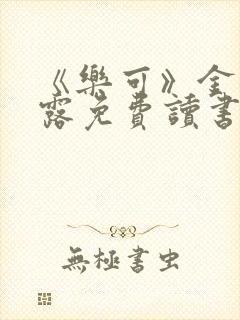 《樂可》全
露免費讀書
無極書虫